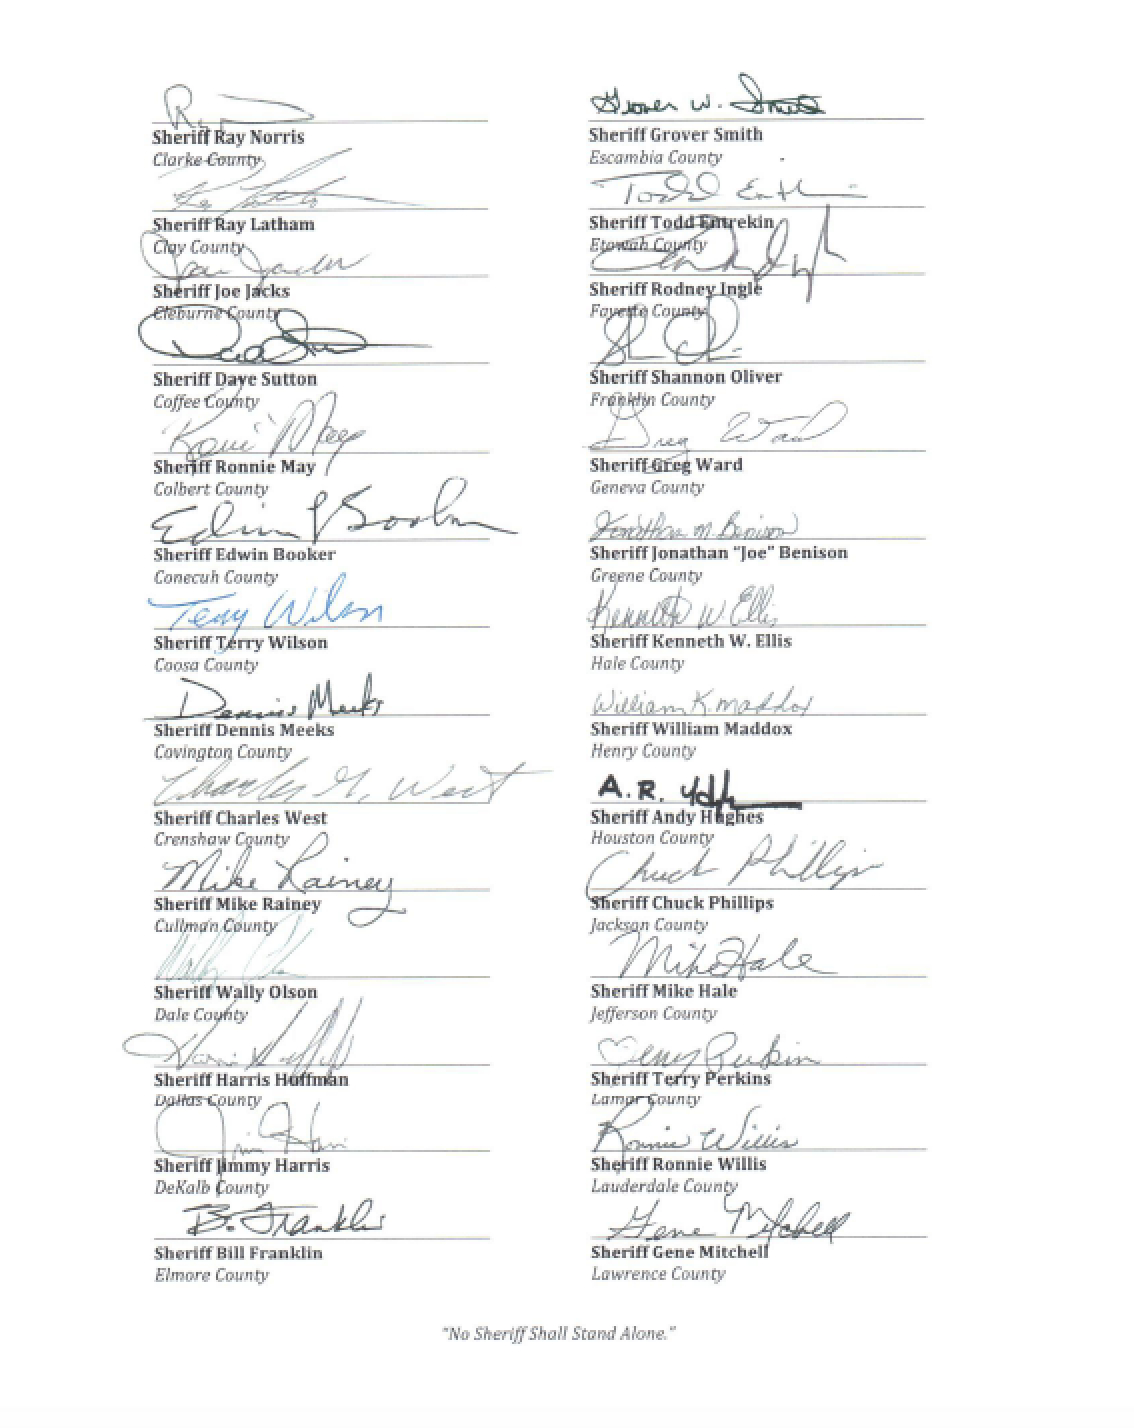 Sheriff Ray Norris
Clarke County
Sheriff Ray Latham
Clay County
Joe Jacks
Sheriff Joe Jacks
Cleburne County
Sheriff Dave Sutton
Coffee County
Sheriff Ronnie May
Colbert County
Edwin Booker
Sheriff Edwin Booker
Conecuh County
Terry Wilson
Sheriff Terry Wilson
Coosa County
Dennis Meeks
Sheriff Dennis Meeks
Covington County
Charles G. West
Sheriff Charles West
Crenshaw County
Mike Rainey
Sheriff Mike Rainey
Cullman County
Sheriff Wally Olson
Dale County
Sheriff Harris Huffman
Dallas County
Sheriff Jimmy Harris
DeKalb County
B. Franklin
Sheriff Bill Franklin
Elmore County
Grover W. Smith
Sheriff Grover Smith
Escambia County
Todd Entrekin
Sheriff Todd Entrekin
Etowah County
Sheriff Rodney Ingle
Fayette County
Sheriff Shannon Oliver
Franklin County
Greg Ward
Sheriff Greg Ward
Geneva County
Jonathan M Benison
Sheriff Jonathan “Joe” Benison
Greene County
Kenneth W. Ellis
Sheriff Kenneth W. Ellis
Hale County
William K. Maddox
Sheriff William Maddox
Henry County
A.R.
Sheriff Andy Hughes
Houston County
Chuck Phillips
Sheriff Chuck Phillips
Jackson County
Mike Hale
Sheriff Mike Hale
Jefferson County
Terry Perkins
Sheriff Terry Perkins
Lamar County
Ronnie Willis
Sheriff Ronnie Willis
Lauderdale County
Gene Mitchell
Sheriff Gene Mitchell
Lawrence County
“No Sheriff Shall Stand Alone.”